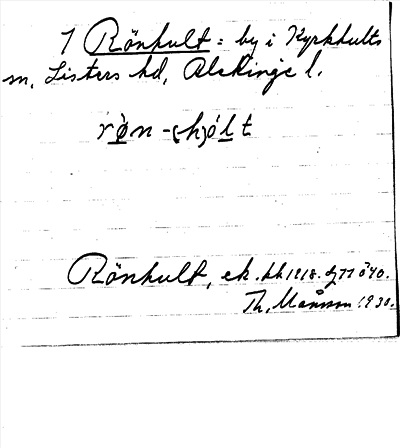 1 Rönhult = by i Kyrkhults
sn, Listers hd, Blekinge l.
rön -(h)ólt
Rönhult, ek. kk 1918.
Th. Månsson 1930.